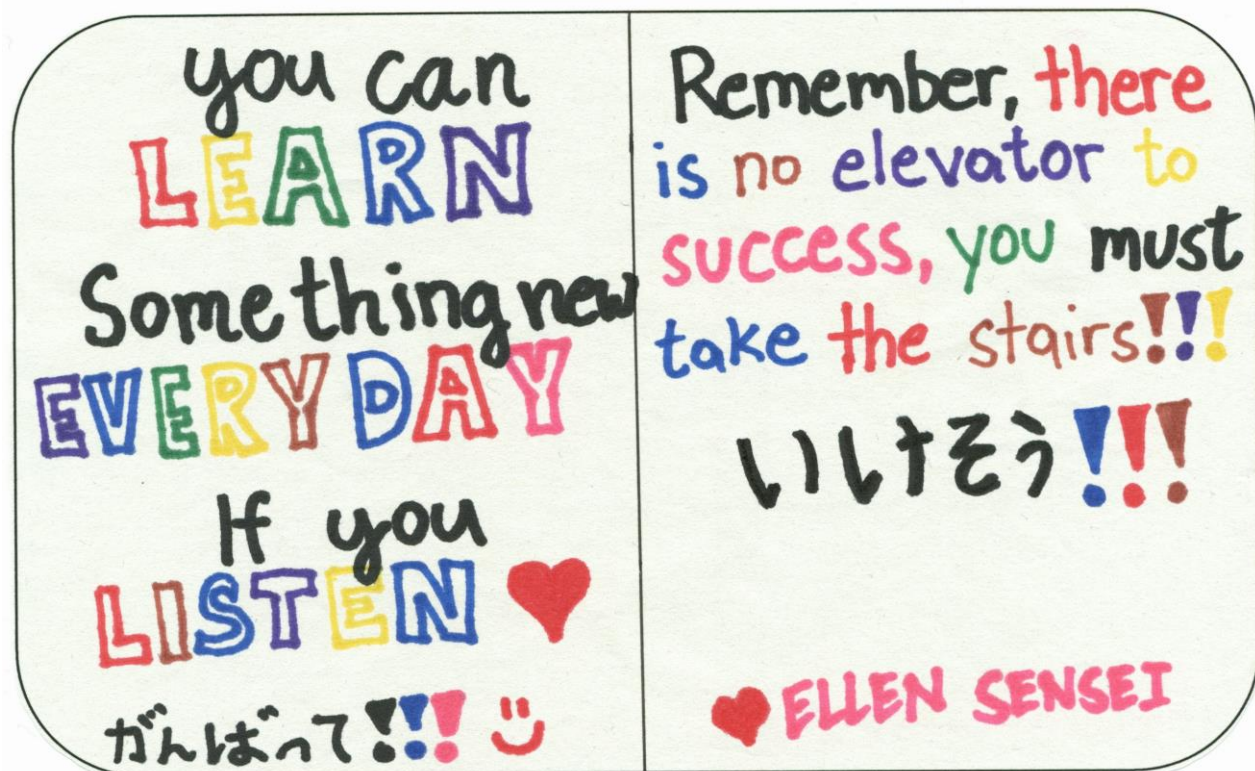 you can
LEARN
Something new
EVERYDAY
If you
LISTEN
がんばって!!!
Remember, there
is no elevator to
success, you must
take the stairs!!!
いけそう!!!
ELLEN SENSEI